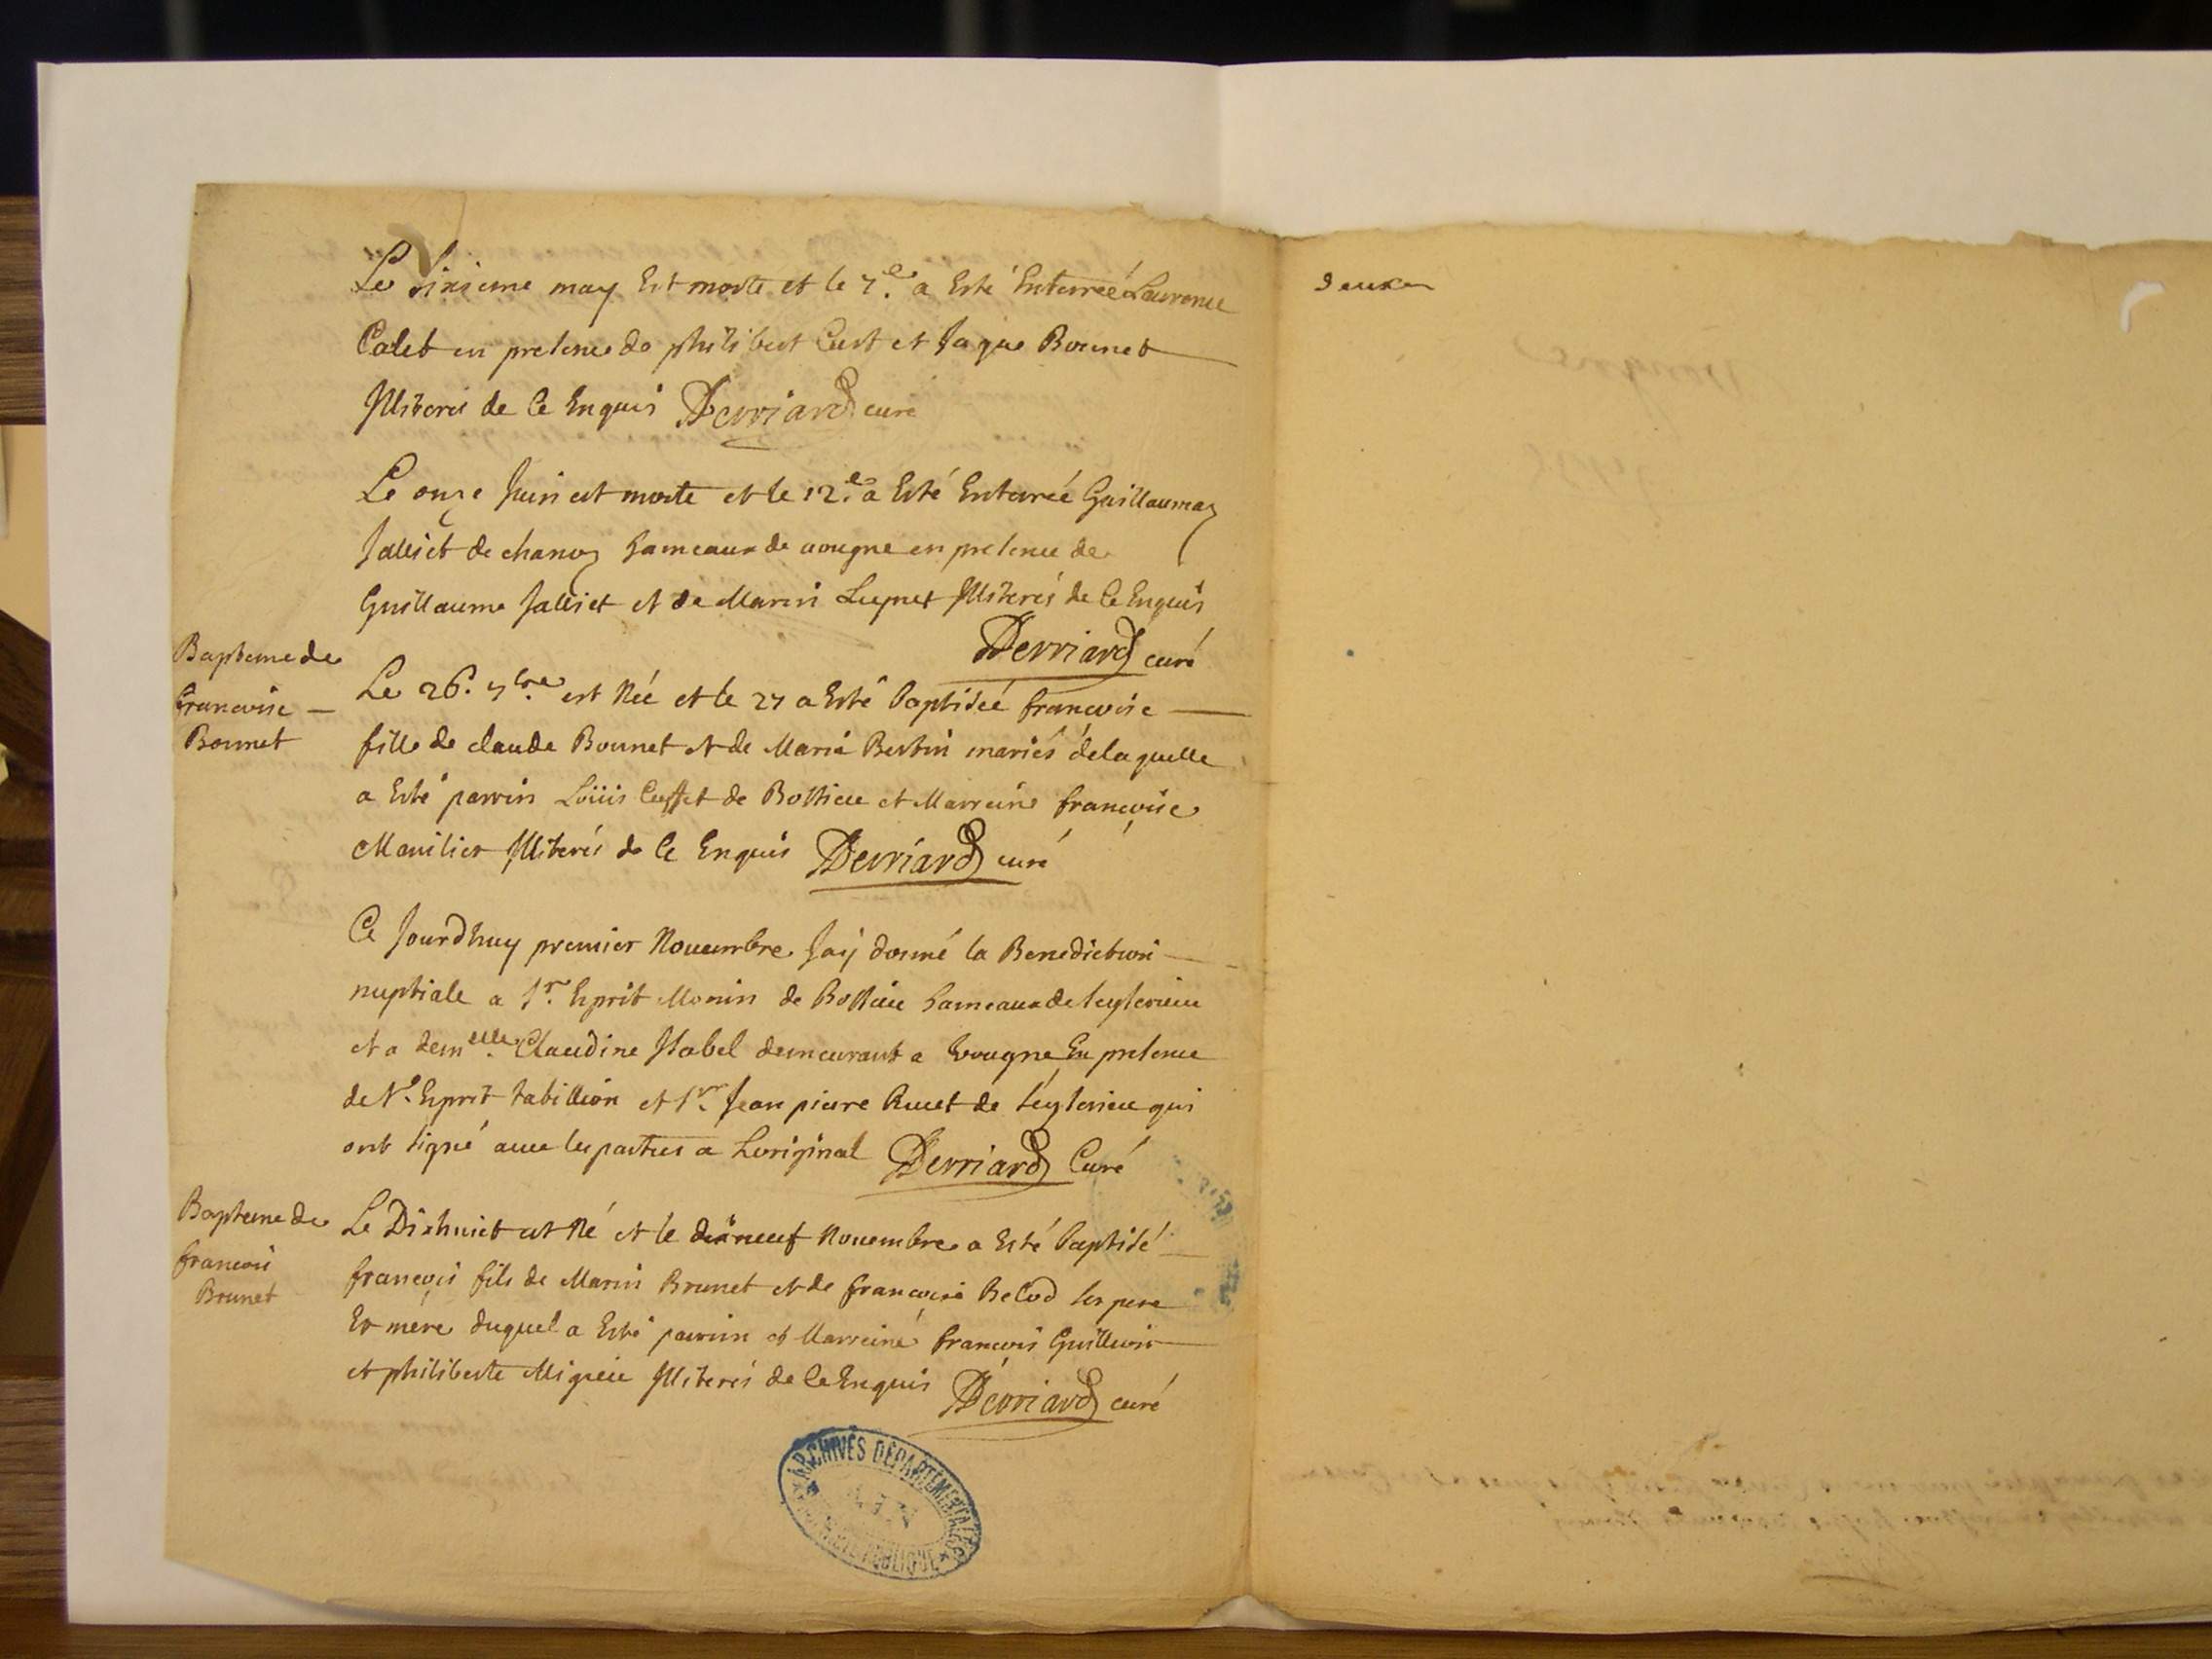 Le Sixieme may Est morte et le 7.e a Esté Enterreé Laurence
Calet en presence de philibert Cust et Jaque Bonnet
Illiterés de Ce Enquis Derriard curé
Le onze Juin est morte et le 12.e a Esté Enterreé Guillaumaz
Jalliet de chanoz hameaux de vougne en presence de
Guillaume Jalliet et de Marin Lupnet Illiterés de Ce Enquis
Derriard curé
Bapteme de
francoise —
Bonnet
Le 26.e 7bre est Neé et le 27 a Esté baptiseé françoise —
fille de claude Bonnet et de Marie Bertin mariés delaquelle
a Esté parrin Loüis Cusset de Bossieu et Marreine françoise
Manilier Illiterés de Ce Enquis Derriard curé
Ce Jourdhuy premier Nouembre Jay donné la Benediction —
nuptiale a Sr. Esprit Monin de Bossieu hameaux de
et a demelle. Claudine demeurant a Vougne En presence
de N.e Esprit tabillion et Sr. Jean piere de qui
ont signé auec les parties a Loriginal Derriard Curé
Bapteme de
francois
Brunet
Le Dixhuict est Né et le dixneuf Nouembre a Esté baptisé —
françois fils de Marin Brunet et de francoise Belod ses pere
Et mere duquel a Esté parrin et Marreine francois Guilleric
et philiberte Migieu Illiterés de Ce Enquis Derriard curé
ARCHIVES DÉPARTEMENTALES
deuxe